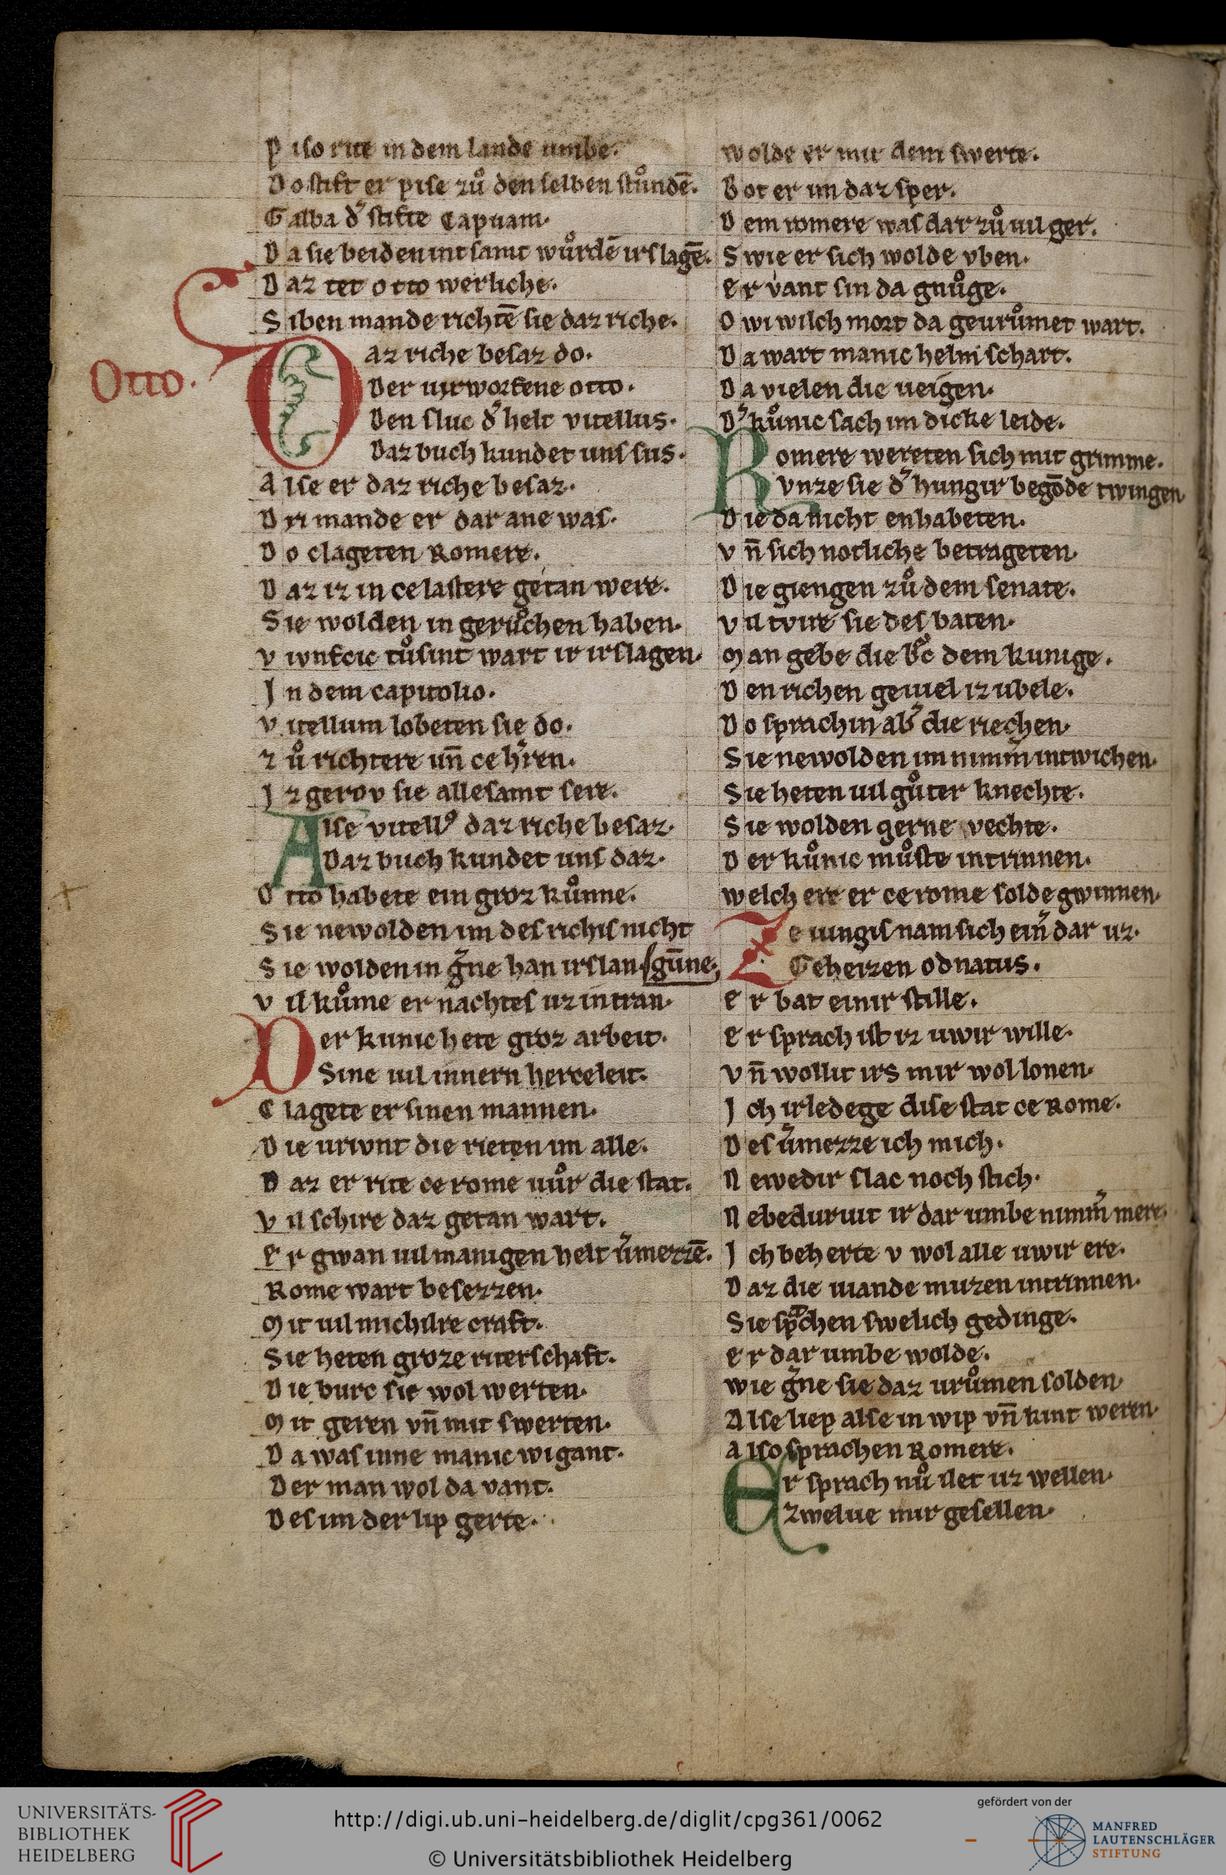 Otto.
P iso rite in dem lande umbe.
D o stift er pise zuͦ den selben stuͦndē.
G alba d͛ stifte Capuam.
D a sie beiden intsamt wuͦrdē irslagē.
D az tet otto werliche.
S iben mande richtē sie daz riche.
D az riche besaz do.
Der virworfene otto.
Den sluc d͛ helt vitellus.
Daz buch kundet uns sus.
A lse er daz riche besaz.
D ri mande er dar ane was.
D o clageten Romere.
D az iz in ce lastere getan were.
S ie wolden in geruͦchen haben.
v iunfcic tuͦsint wart ir irslagen.
I n dem capitolio.
v itellum lobeten sie do.
z uͦ richtere un̄ ce h͛ren.
I z gerov sie alle samt sere.
A lse vitell᾿ daz riche besaz.
Daz buch kundet uns daz.
O tto habete ein groz kuͦnne.
S ie newolden im des richis nicht
S ie wolden in g͛ne han irslan gūne.
v il kuͦme er nachtes uz intran.
D er kunic hete groz arbeit.
Sine vil innern herceleit.
C lagete er sinen mannen.
D ie uriunt die rieten im alle.
D az er rite ce rome uuͦr die stat.
v il schire daz getan wart.
E r gwan uil manigen helt u͛mezzē.
Rome wart besezzen.
M it uil michilre craft.
S ie heten groze riterschaft.
D ie burc sie wol werten.
M it geren vn̄ mit swerten.
D a was inne manic wigant.
D er man wol da vant.
D es im der lip gerte.
w olde er mit dem swerte.
B ot er im daz sper.
D em romere was dar zuͦ uil ger.
S wie er sich wolde vben.
E r vant sin da gnuͦge.
O wi wilch mort da geuruͦmet wart.
D a wart manic helm schart.
D a vielen die ueigen.
D͛ kuͦnic sach im dicke leide.
R omere wereten sich mit grimme.
Vnze sie d͛ hungir begōde twingen
D ie da nicht enhabeten.
v n̄ sich notliche betrageten.
D ie giengen zuͦ dem senate.
v il tvire sie des baten.
M an gebe die dem kunige.
D en richen geuiel iz ubele.
D o sprachin ab͛ die riechen.
S ie newolden im nimm͛ intwichen.
S ie heten uil guͦter knechte.
S ie wolden gerne vechte.
D er kuͦnic muͦste intrinnen.
welch ere er ce rome solde gwinnen.
Z e iungis nam sich ein͛ dar uz.
Geheizen odnatus.
E r bat einir stille.
E r sprach ist iz uwir wille.
V n̄ wollit irs mir wol lonen.
I ch irledege dise stat ce Rome.
D es u͛mezze ich mich.
N ewedir slac noch stich.
N ebedurvit ir dar umbe nimm͛ mere.
I ch beherte v wol alle uwir ere.
D az die uiande muzen intrinnen.
S ie spͣchen swelich gedinge.
E r dar umbe wolde.
wie g͛ne sie daz uruͦmen solden.
A lse liep alse in wip vn̄ kint weren.
A lso sprachen Romere.
E r sprach nuͦ ilet uz wellen.
zwelue mir gesellen.
UNIVERSITÄTS-
BIBLIOTHEK
HEIDELBERG
http://digi.ub.uni-heidelberg.de/diglit/cpg361/0062
© Universitätsbibliothek Heidelberg
gefördert von der
MANFRED
LAUTENSCHLÄGER
STIFTUNG